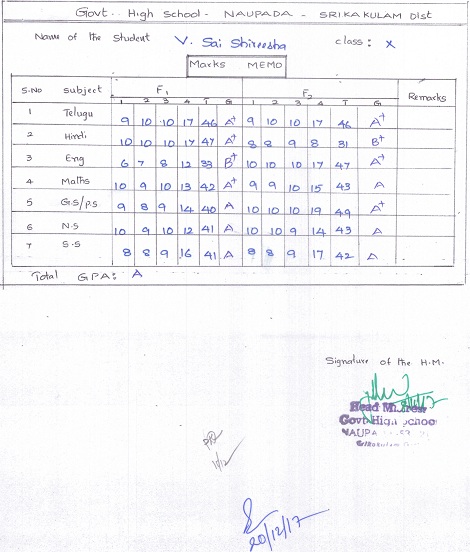 Govt.. High School - NAUPADA - SRIKAKULAM Dist
Name of the Student V. Sai Shireesha class: X
Marks MEMO
S.NO subject F1 F2 Remarks
1 2 3 4 T G 1 2 3 4 T G
1 Telugu 9 10 10 17 46 A+ 9 10 10 17 46 A+
2 Hindi 10 10 10 17 47 A+ 8 8 9 8 31 B+
3 Eng 6 7 8 12 33 B+ 10 10 10 17 47 A+
4 Maths 10 9 10 13 42 A+ 9 9 10 15 43 A
5 G.S/P.S 9 8 9 14 40 A 10 10 10 19 49 A+
6 N.S 10 9 10 12 41 A 10 10 9 14 43 A
7 S.S 8 8 9 16 41 A 8 8 9 17 42 A
Total GPA: A
Signature of the H.M.
Head
Govt High School
NAUPA
Srikakulam
11/12
20/12/17